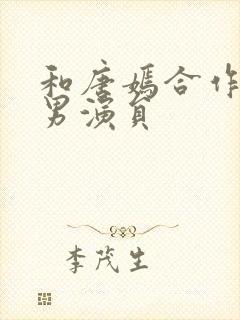 和唐嫣合作
男演员
李茂生